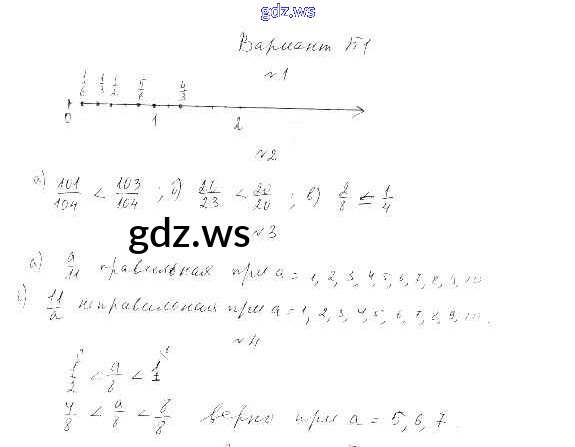 gdz.ws
Вариант П1
№1
1/6 1/3 1/2 5/6 4/3
0 1 2
№2
а) 101/104 < 103/104 ; б) 21/23 < 20/20 ; в) 2/8 ≤ 1/4
gdz.ws
№3
а) a/11 правильная при a = 1, 2, 3, 4, 5, 6, 7, 8, 9, 10
б) 11/a неправильная при a = 1, 2, 3, 4, 5, 6, 7, 8, 9, 10.
№4
1/2 < a/8 < 1
4/8 < a/8 < 8/8 верно при a = 5, 6, 7.